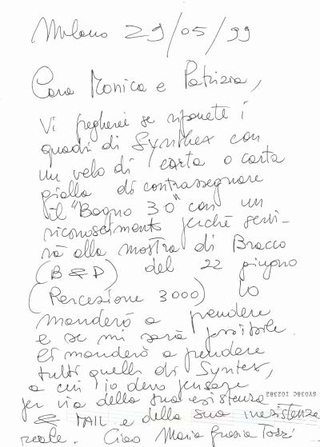 Milano 29/05/99
Cara Monica e Patrizia,
Vi pregherei se riponete i
quadri di Synthex con
un velo di carta o carta
gialla di contrassegnare
il "Bagno 30" con un
riconoscimento perché servi-
rà alla mostra di Bracco
(B & D) del 22 giugno
(Percezione 3000) lo
manderò a prendere
e se mi sarà possibile
manderò a prendere
tutti quelli di Syntex,
a cui io devo pensare
per via della sua esistenza
MAIL e della sua inesistenza
reale. Ciao Maria Grazia Tozzi